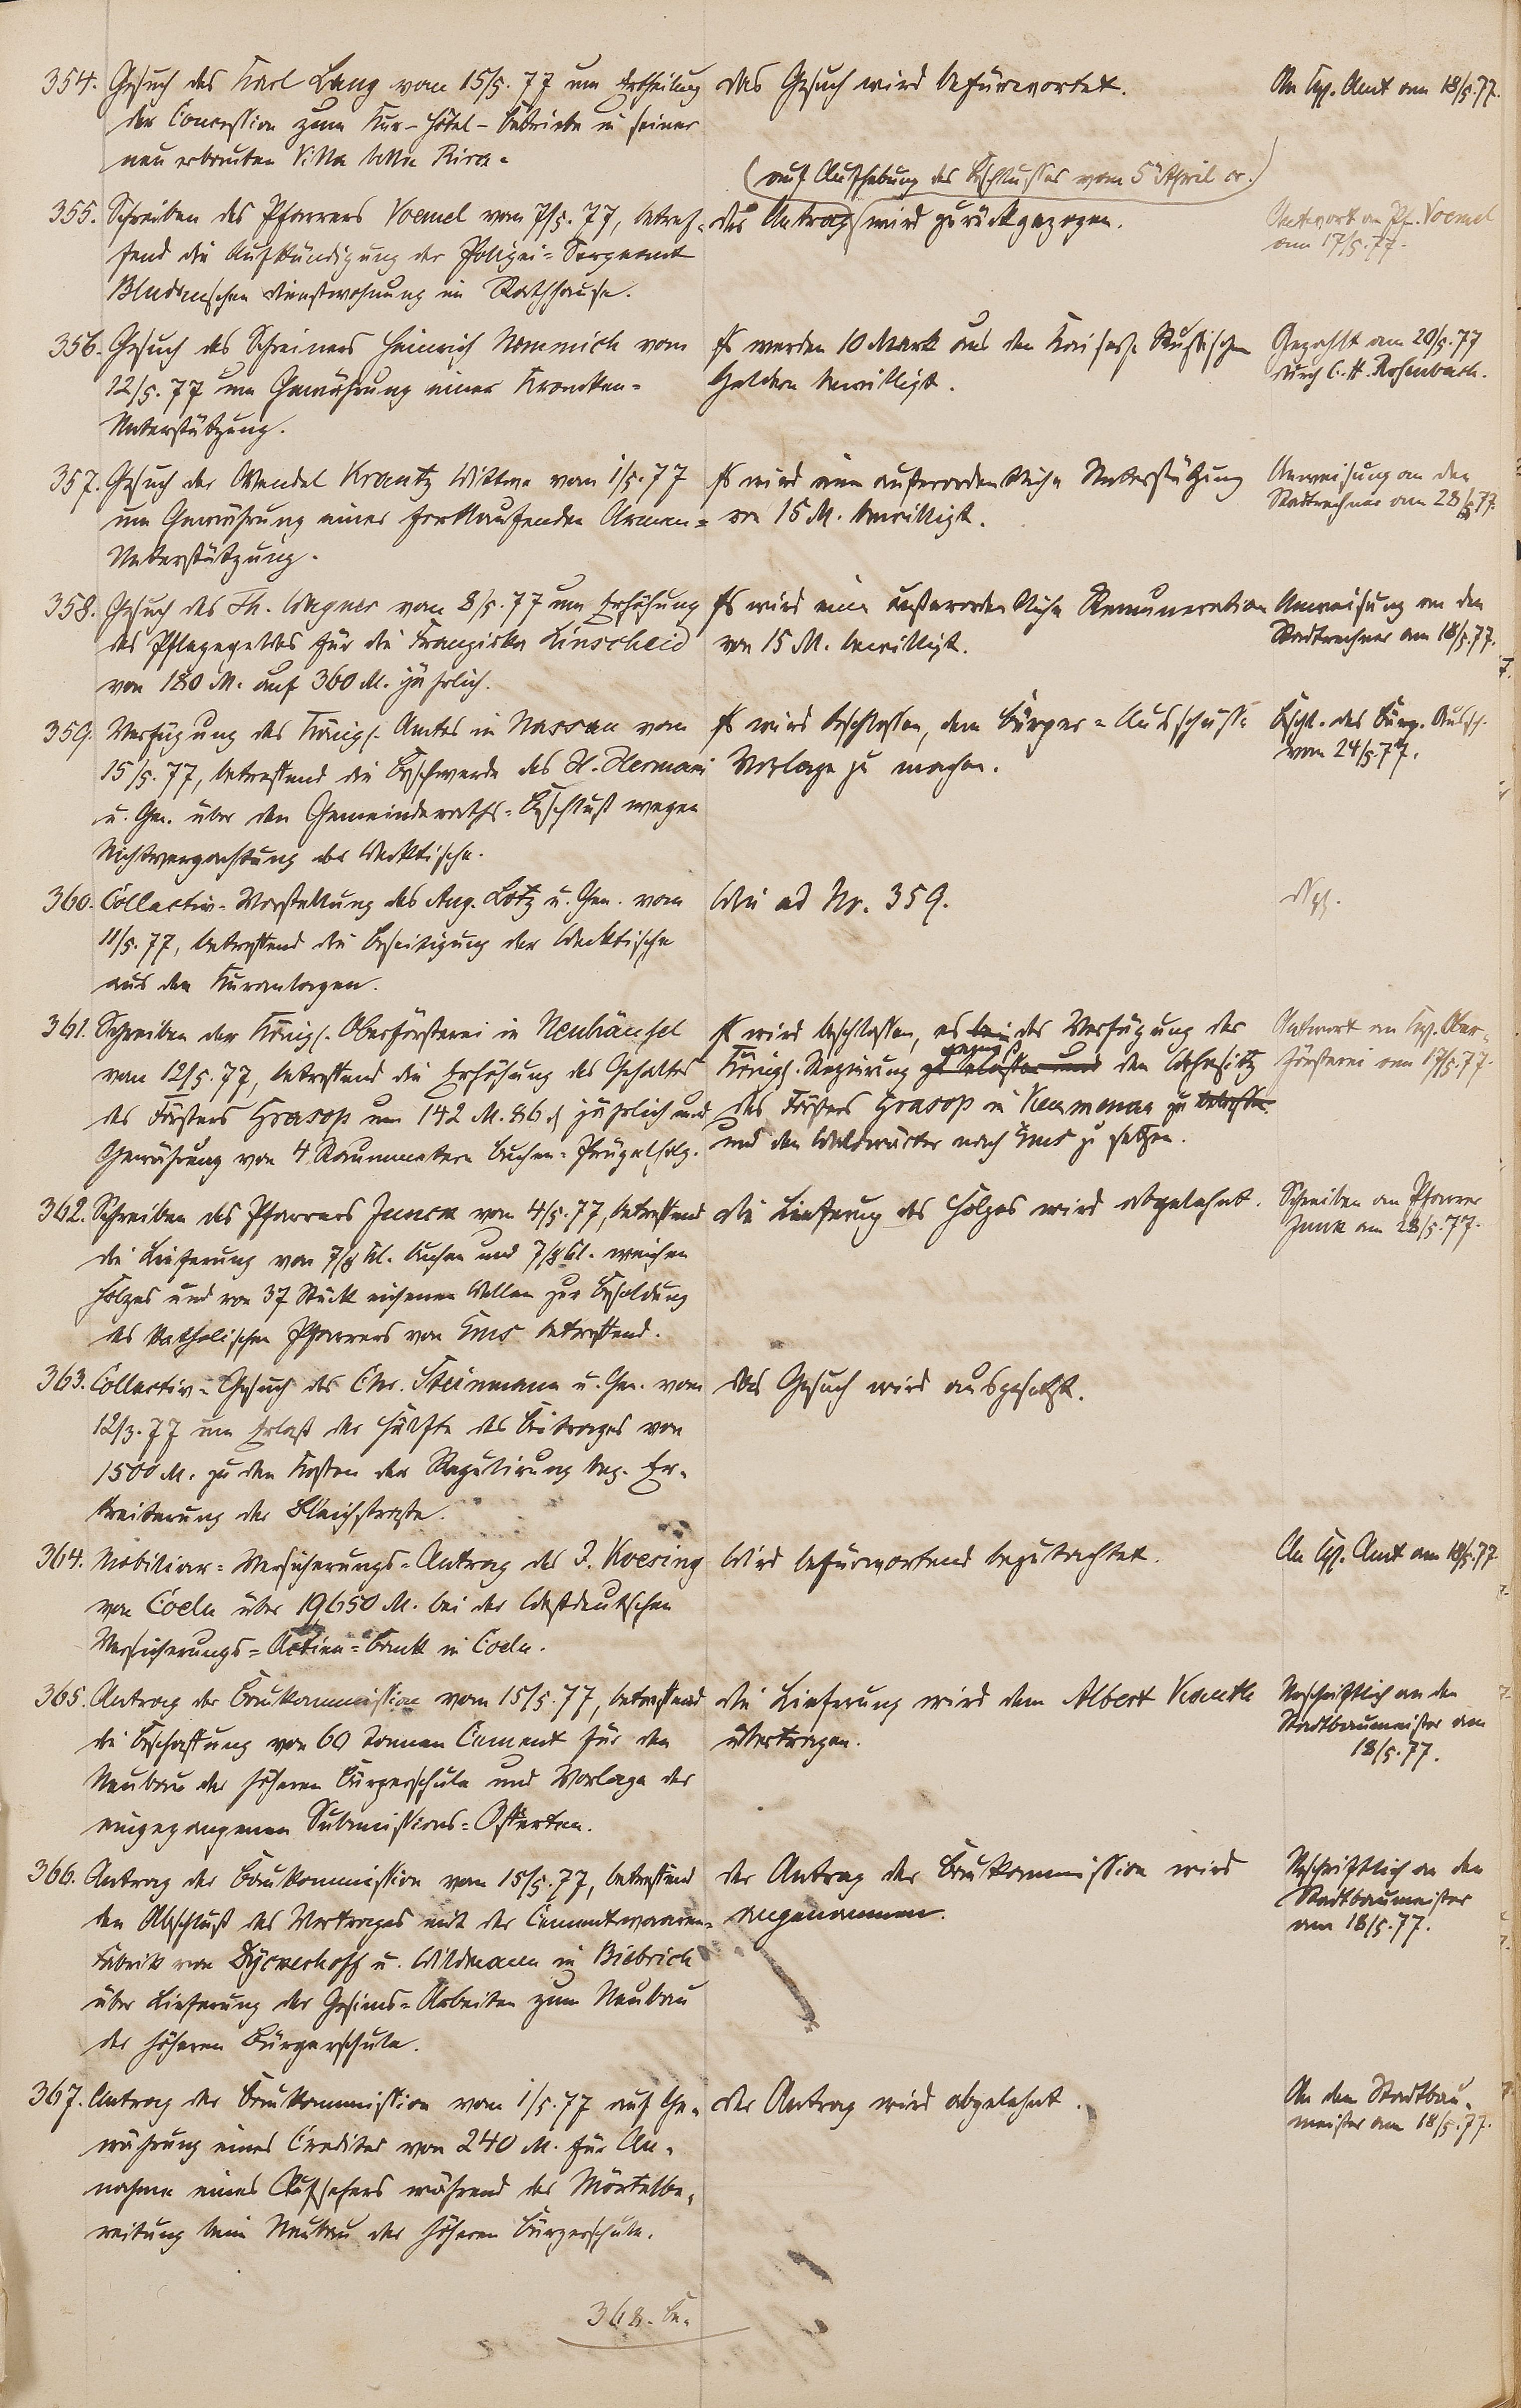 354. Gesuch des Karl Lang vom 15/5. 77 um Ertheilung
der Concession zum Kur-Hôtel-Betriebe in seiner
neu erbauten Villa bella Riva.
Das Gesuch wird befürwortet.
An Kgl. Amt am 18/5. 77.
355. Schreiben des Pfarrers Voemel vom 7/5. 77, betref-
fend die Aufkündigung der Polizei-Sergeant
Bludauschen Dienstwohnung im Rathhause.
(auf Aufhebung des Beschlusses vom 5. April cr.)
Der Antrag wird zurückgezogen.
Antwort an Pf. Voemel
am 17/5. 77.
356. Gesuch des Schreiners Heinrich Nommich vom
12/5. 77 um Gewährung einer Kranken-
Unterstützung.
Es werden 10 Mark aus den Kaiserl. Russischen
Geldern bewilligt.
Gezahlt am 20/5. 77
durch C. H. Rosenbach.
357. Gesuch der Wendel Krantz Wittwe vom 1/5. 77
um Gewährung einer fortlaufenden Armen-
Unterstützung.
Es wird eine außerordentliche Unterstützung
von 15 M. bewilligt.
Anweisung an den
Stadtrechner am 28/5 77.
358. Gesuch des Th. Wagner vom 8/5. 77 um Erhöhung
des Pflegegeldes für die Franziska Linscheid
von 180 M. auf 360 M. jährlich.
Es wird eine außerordentliche Remuneration
von 15 M. bewilligt.
Anweisung an den
Stadtrechner am 18/5. 77.
359. Verfügung des Königl. Amtes in Nassau vom
15/5. 77, betreffend die Beschwerde des H. Hermani
u. Gen. über den Gemeinderaths-Beschluß wegen
Nichtverpachtung der Werktische.
Es wird beschlossen, dem Bürger-Ausschusse
Vorlage zu machen.
Beschl. des Bürg. Aussch.
vom 24/5. 77.
360. Collectiv-Vorstellung des Aug. Lotz u. Gen. vom
11/5. 77, betreffend die Beseitigung der Werktische
aus den Kuranlagen.
Wie ad Nr. 359.
361. Schreiben der Königl. Oberförsterei in Neuhäusel
vom 12/5. 77, betreffend die Erhöhung des Gehaltes
des Försters Grasop um 142 M. 86 ₰ jährlich und
Gewährung von 4 Raummetern Buchen-Prügelholz.
Es wird beschlossen, es bei der Verfügung der
Königl. Regierung zu belassen und den Wohnsitz
des Försters Grasop in Kemmenau zu belassen
und den Waldwärter nach Ems zu setzen.
Antwort an Kgl. Ober-
försterei am 17/5. 77.
362. Schreiben des Pfarrers Junck vom 4/5. 77, betreffend
die Lieferung von 7/8 Kl. buchen und 7/8 Kl. weichen
Holzes und von 37 Stück eichenen Wellen zur Besoldung
des katholischen Pfarrers von Ems betreffend.
Die Lieferung des Holzes wird abgelehnt.
Schreiben an Pfarrer
Junck am 28/5. 77.
363. Collectiv-Gesuch des Chr. Steinmann u. Gen. vom
12/3. 77 um Erlaß der Hälfte des Beitrages von
1500 M. zu den Kosten der Regulirung bez. Er-
breiterung der Bleichstraße.
Das Gesuch wird ausgesetzt.
364. Mobiliar-Versicherungs-Antrag des J. Koesing
von Coeln über 19,650 M. bei der Westdeutschen
Versicherungs-Actien-Bank in Coeln.
Wird befürwortend begutachtet.
An Kgl. Amt am 18/5. 77
365. Antrag der Baukommission vom 15/5. 77, betreffend
die Beschaffung von 60 Tonnen Cement für den
Neubau der höheren Bürgerschule und Vorlage der
eingegangenen Submissions-Offerten.
Die Lieferung wird dem Albert Kauth
übertragen.
Urschriftlich an den
Stadtbaumeister am
18/5. 77.
366. Antrag der Baukommission vom 15/5. 77, betreffend
den Abschluß des Vertrages mit der Cementwaaren-
Fabrik von Dyckerhoff u. Widmann in Biebrich
über Lieferung der Gesims-Arbeiten zum Neubau
der höheren Bürgerschule.
Der Antrag der Baukommission wird
angenommen.
Urschriftlich an den
Stadtbaumeister
am 18/5. 77.
367. Antrag der Baukommission vom 1/5. 77 auf Ge-
währung eines Credites von 240 M. für An-
nahme eines Aufsehers während der Mörtelbe-
reitung beim Neubau der höheren Bürgerschule.
Der Antrag wird abgelehnt.
An den Stadtbau-
meister am 18/5. 77.
368. Be-